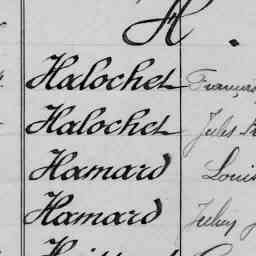 H.
Halochet François
Halochet Jules
Hamard Louis
Hamard